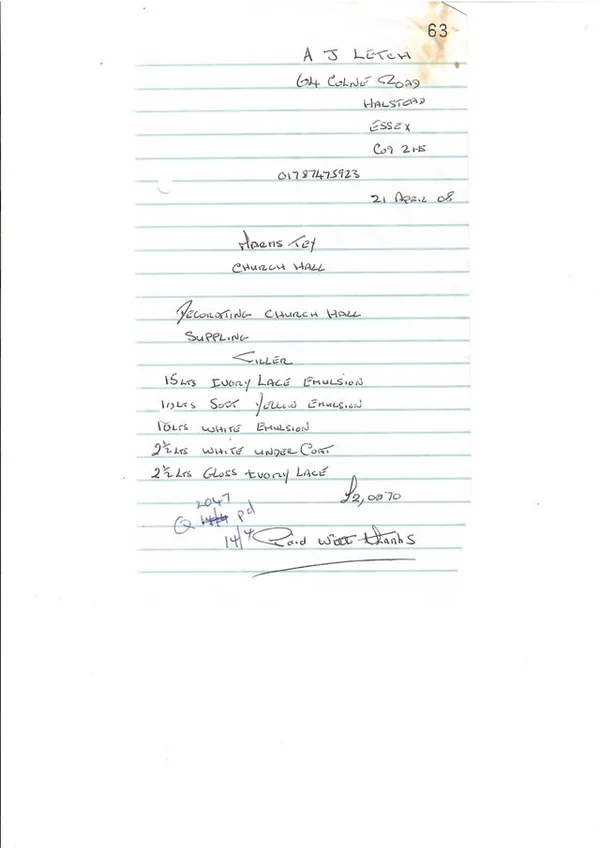 63
A J LETCH
64 COLNE ROAD
HALSTEAD
ESSEX
CO9 2HS
01787475923
21 APRIL 08
MARKS TEY
CHURCH HALL
DECORATING CHURCH HALL
SUPPLING
FILLER
15 LTS IVORY LACE EMULSION
10 LTS SOFT YELLOW EMULSION
10 LTS WHITE EMULSION
2½ LTS WHITE UNDER COAT
2½ LTS GLOSS IVORY LACE
2047
pd
14/4
Paid with thanks